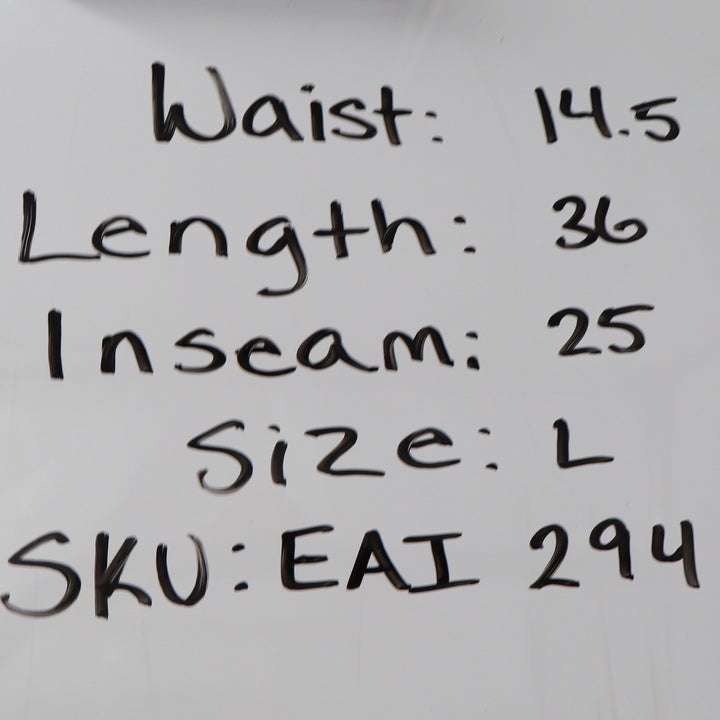 Waist: 14.5
Length: 36
Inseam: 25
Size: L
SKU: EAI 294